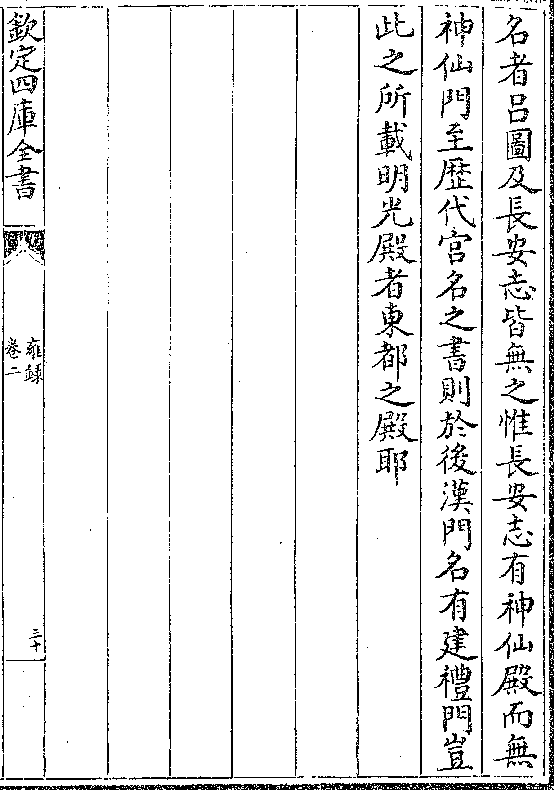 名者呂圖及長安志皆無之惟長安志有神仙殿而無
神仙門至歷代宫名之書則於後漢門名有建禮門豈
此之所載明光殿者東都之殿耶
欽定四庫全書
雍録
卷二
三十